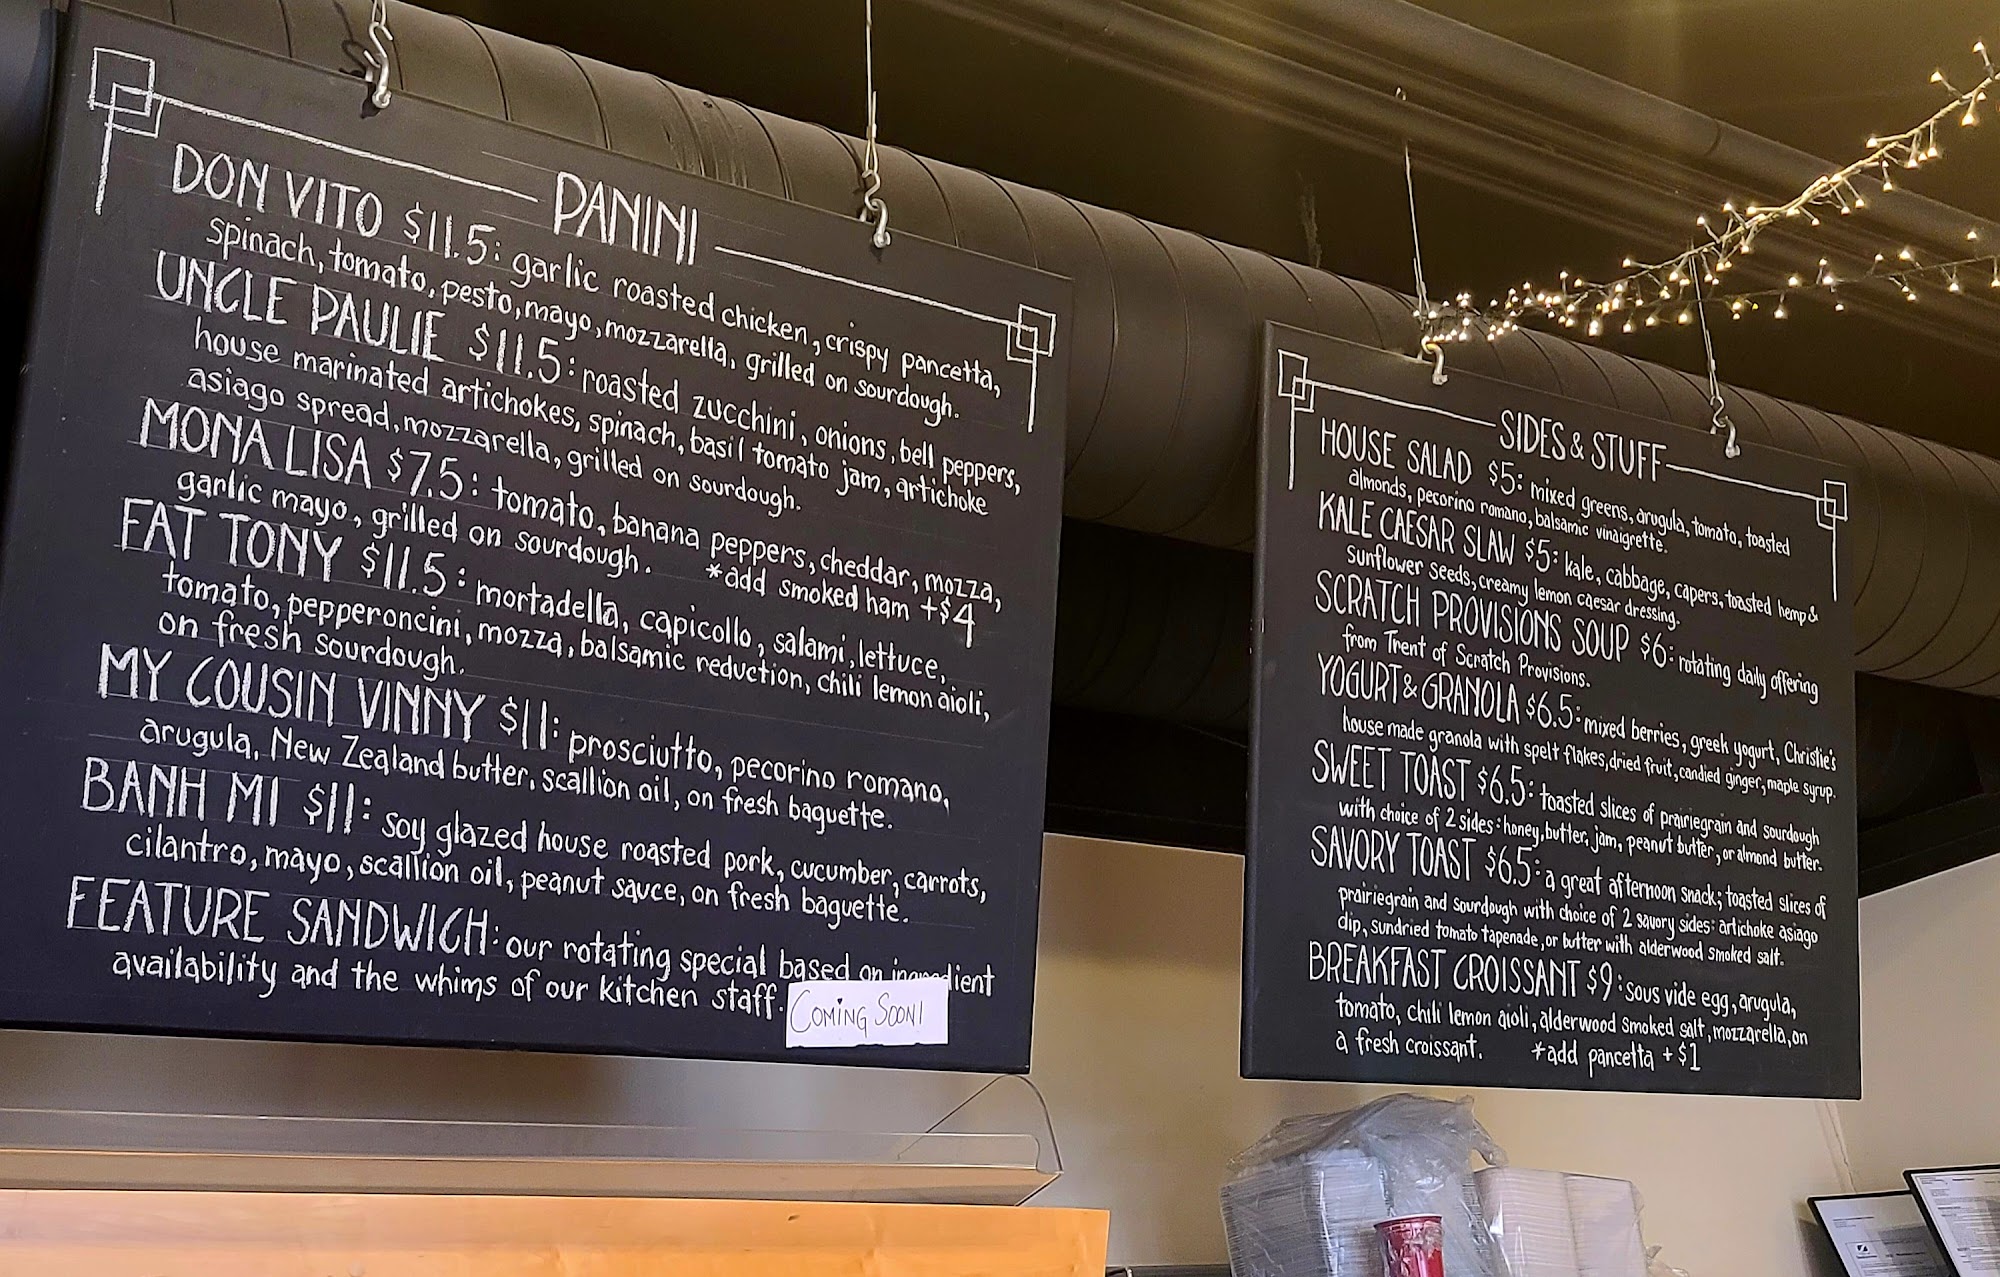 PANINI
DON VITO $11.5: garlic roasted chicken, crispy pancetta,
spinach, tomato, pesto, mayo, mozzarella, grilled on sourdough.
UNCLE PAULIE $11.5: roasted zucchini, onions, bell peppers,
house marinated artichokes, spinach, basil tomato jam, artichoke
asiago spread, mozzarella, grilled on sourdough.
MONA LISA $7.5: tomato, banana peppers, cheddar, mozza,
garlic mayo, grilled on sourdough. *add smoked ham +$4
FAT TONY $11.5: mortadella, capicollo, salami, lettuce,
tomato, pepperoncini, mozza, balsamic reduction, chili lemon aioli,
on fresh sourdough.
MY COUSIN VINNY $11: prosciutto, pecorino romano,
arugula, New Zealand butter, scallion oil, on fresh baguette.
BANH MI $11: soy glazed house roasted pork, cucumber, carrots,
cilantro, mayo, scallion oil, peanut sauce, on fresh baguette.
FEATURE SANDWICH: our rotating special based on ingredient
availability and the whims of our kitchen staff.
COMING SOON!
SIDES & STUFF
HOUSE SALAD $5: mixed greens, arugula, tomato, toasted
almonds, pecorino romano, balsamic vinaigrette.
KALE CAESAR SLAW $5: kale, cabbage, capers, toasted hemp &
sunflower seeds, creamy lemon caesar dressing.
SCRATCH PROVISIONS SOUP $6: rotating daily offering
from Trent of Scratch Provisions.
YOGURT & GRANOLA $6.5: mixed berries, greek yogurt, Christie's
house made granola with spelt flakes, dried fruit, candied ginger, maple syrup.
SWEET TOAST $6.5: toasted slices of prairiegrain and sourdough
with choice of 2 sides: honey, butter, jam, peanut butter, or almond butter.
SAVORY TOAST $6.5: a great afternoon snack; toasted slices of
prairiegrain and sourdough with choice of 2 savory sides: artichoke asiago
dip, sundried tomato tapenade, or butter with alderwood smoked salt.
BREAKFAST CROISSANT $9: sous vide egg, arugula,
tomato, chili lemon aioli, alderwood smoked salt, mozzarella, on
a fresh croissant. *add pancetta + $1